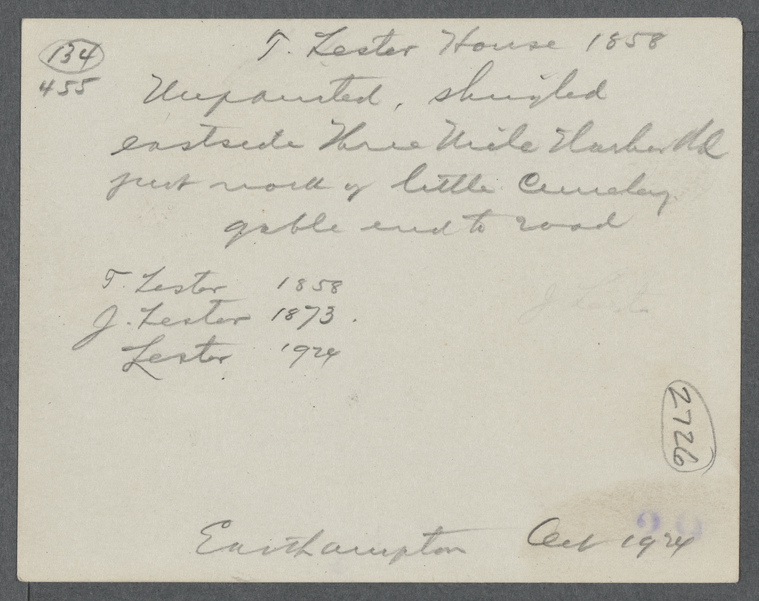 134
455
T. Lester House 1858
Unpainted, shingled
eastside Three Mile Harbor Rd
just north of little Cemetery
gable end to road
T. Lester 1858
J. Lester 1873.
Lester 1924
J Leste
2726
Easthampton Oct 1924